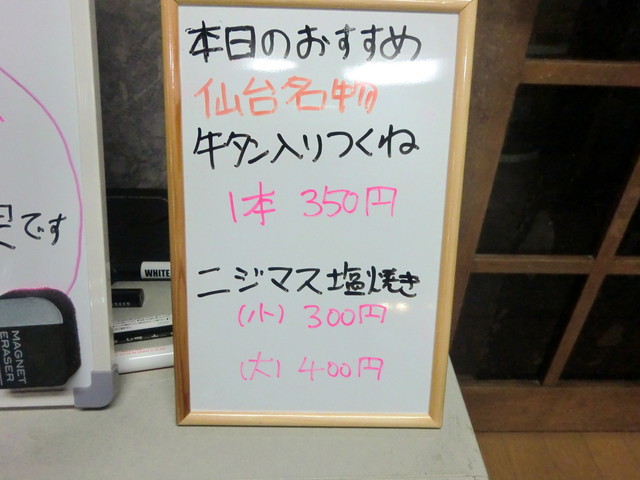 本日のおすすめ
仙台名物
牛タン入りつくね
1本 350円
ニジマス塩焼き
(小) 300円
(大) 400円
です
WHITE
MAGNET
ERASER